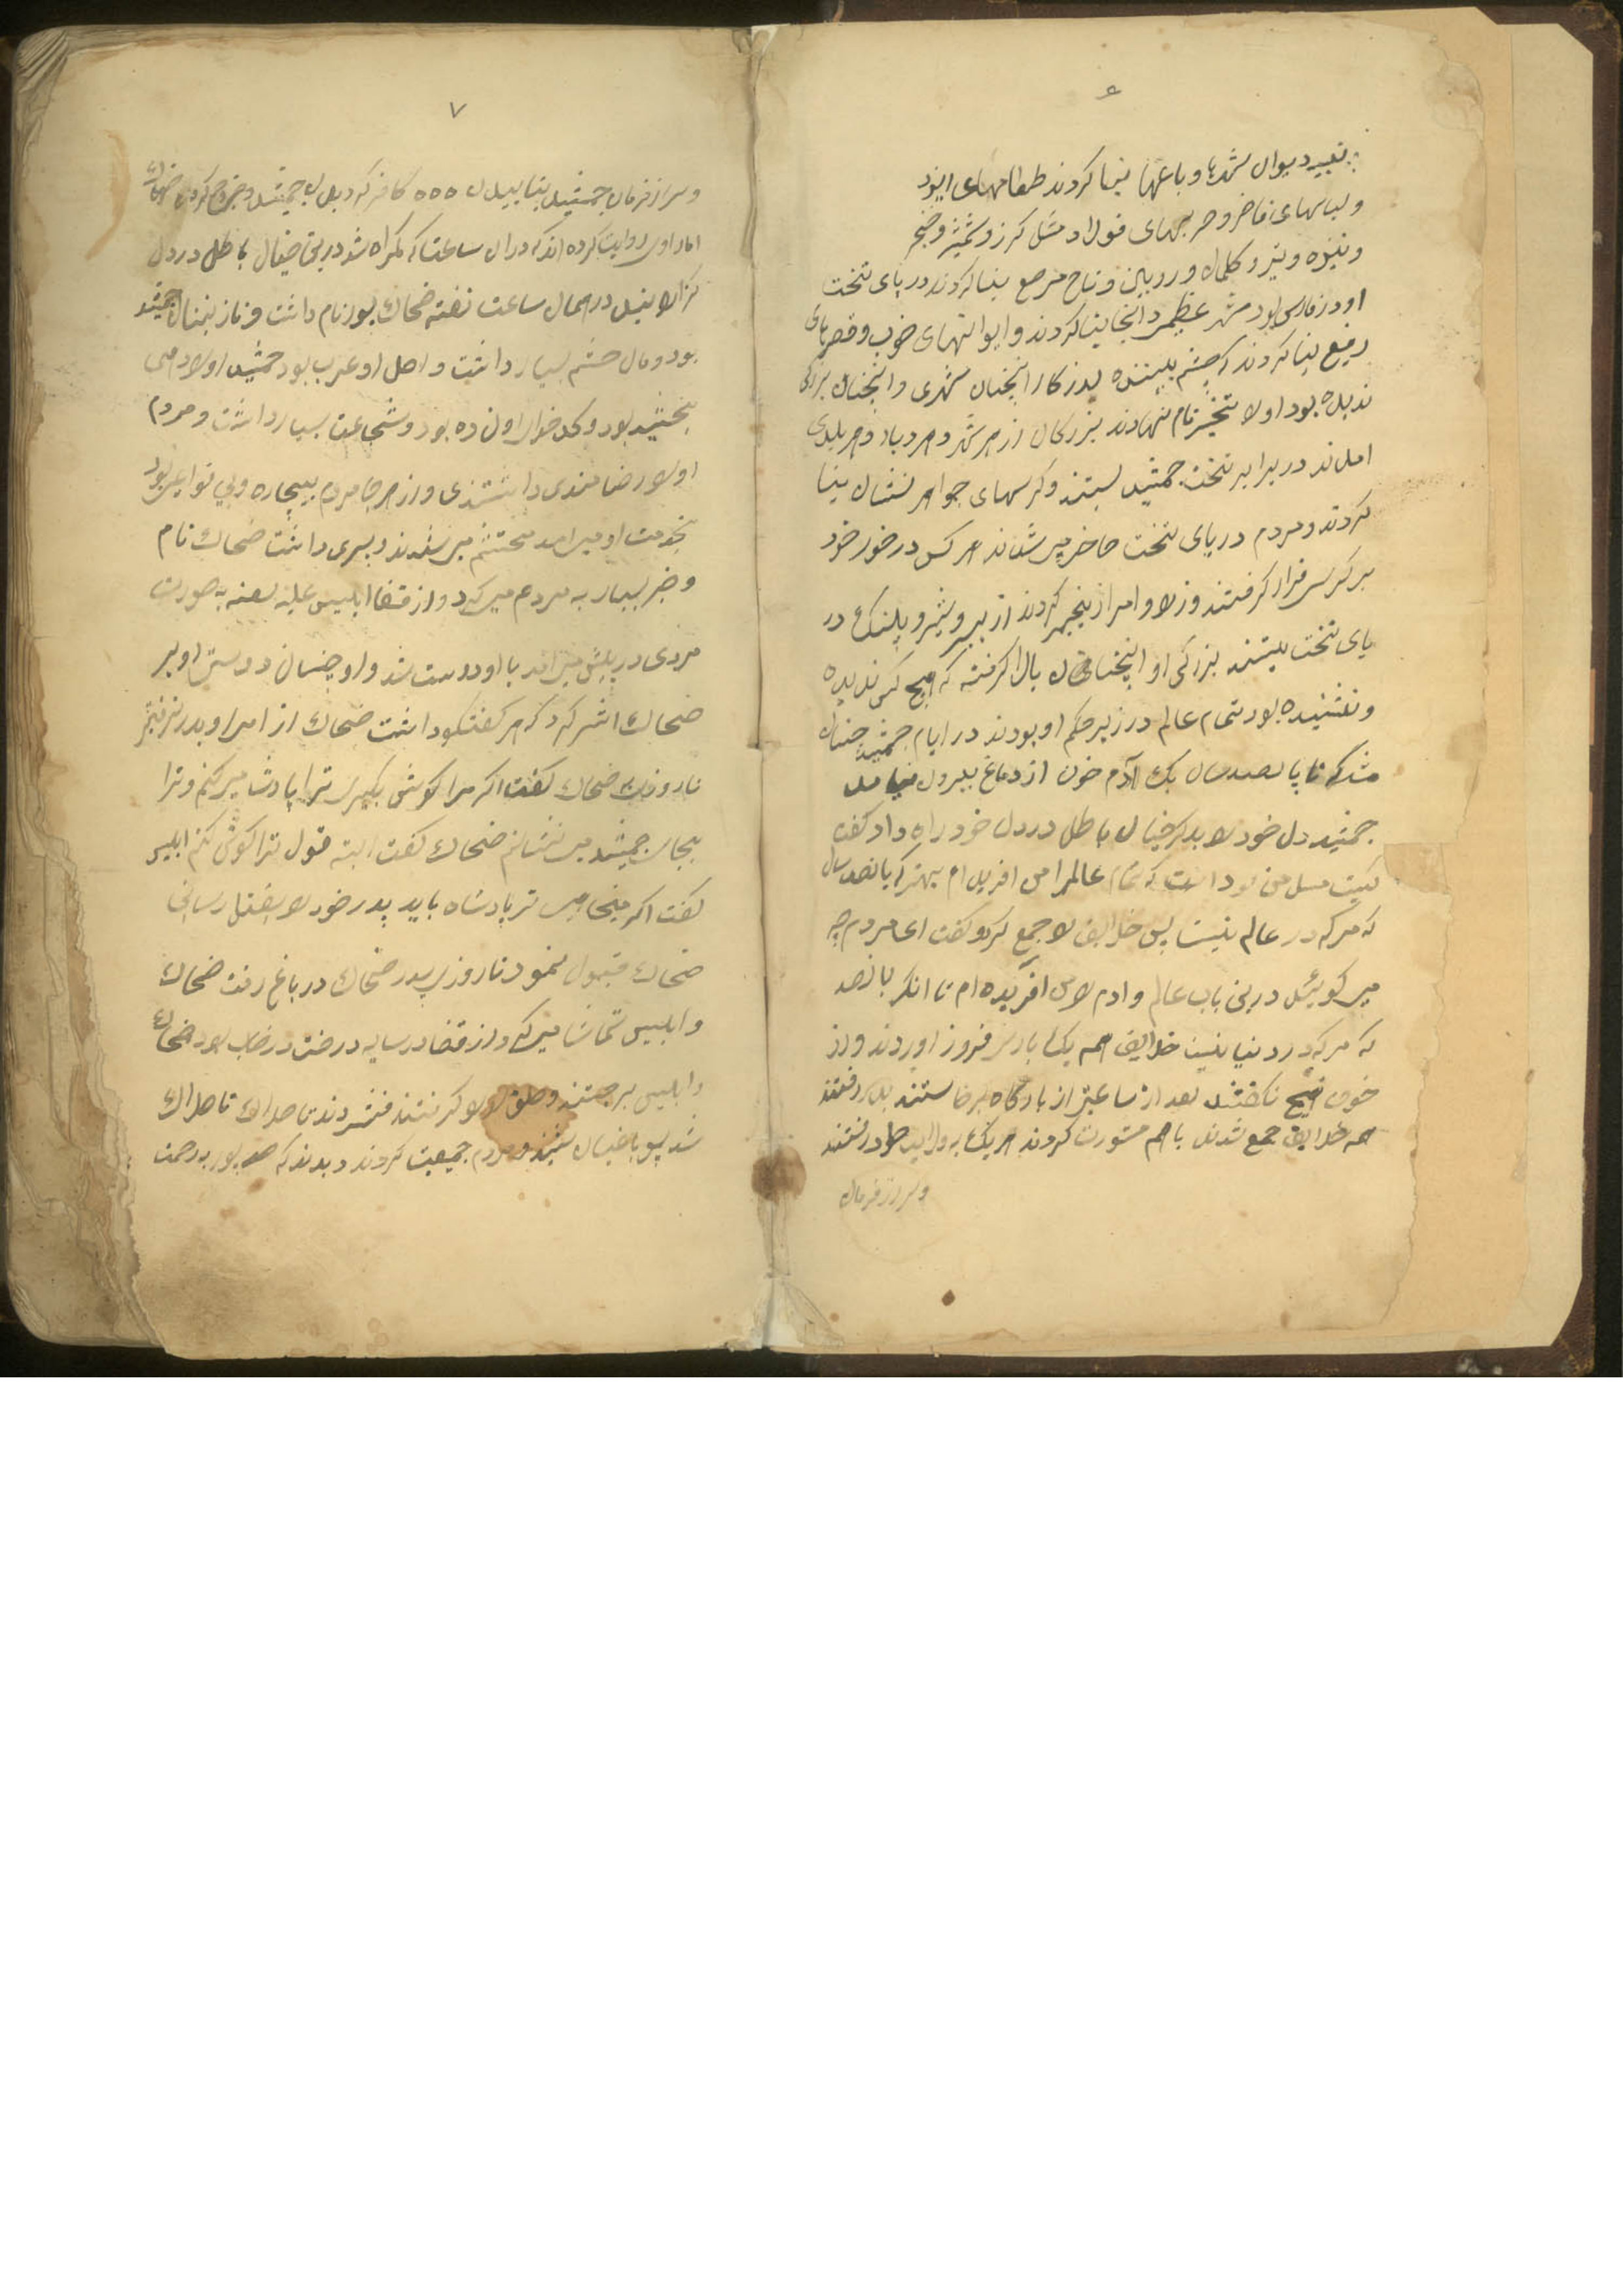 ۶
تعبیه دیوان شهرها و باغها بنا کردند طعامهای ایزد
و لباسهای فاخر و حربهای فولاد مثل کرز و شمشیر و خنجر
و نیزه و تیر و کلمان و روبین و تاج مرصع بنا کردند در پای تخت
او در فارس بود شهر عظیمر دانجا بنا کردند و ایوانهای خوب و قصرهای
رفیع بنا کردند که چشم بیننده روزکار انچنان شهری و انچنان بزرکی
ندیده بود اورا نام نهادند بزرکان از هر شهر و هر دیار و هر بلدی
امدند در برابر تخت جمشید بستند و کرسهای جواهر نشان بنا
کردند و مردم در پای تخت حاضر میشدند هر کس در خور خود
بر کرسی قرار کرفتند وزرا و امرا زنجیر کردند از ببر و شیر و پلنک در
پای تخت ببستند بزرکی او انچنان بالا کرفته که هیچ کس ندیده
و نشنیده بود تمام عالم در زیر حکم او بودند در ایام جمشید چنان
شد که تا پانصد سال یک آدم خون از دماغ بیرون نیامد
جمشید دل خود را بدکر خیال باطل در دل خود راه داد کفت
کیست مسل من بود است که تمام عالمرا من افریدم بهتر که پانصد سال
که مرکه در عالم نیست پس خلایق را جمع کرد و کفت ای مردم چه
میکوئید درین باب عالم و ادم را من آفریده ام تا انکر پانصد
که مرکه در دنیا نیست خلایق همه یک بار سر فروز اوردند و از
خوف هیچ نکفتند بعد از ساعتی از بارکاه برخاستند بدر رفتند
همه خلایق جمع شدند با هم مشورت کردند هر یک به ولایت خود رفتند
و سر از فرمان
۷
و سر از فرمان جمشید بتابیدن ٥٥٥ کافر کردیدن جمشید و خروج کردن ضحاک
اما راوی روایت کرده اند که دران ساعت که کمراه شد درین خیال باطل در دل
کذرانید در همان ساعت نفته ضحاک بود نام داشت و ناز بنمان جمشید
بود و مال حشم بسیار داشت و اصل او عرب بود جمشید اورا دمی
بخشید بود و کدخدای اون ده بود و شجاعت بسیار داشت و مردم
اورا رضامندی داشتندی و از هر جا مردم بیچاره و بی نوا عرب بود
بخدمت او میامد محتشم میشدند و پسری داشت ضحاک نام
و خیر بسیار به مردم میکرد و از قضا ابلیس علیه لعنه به صورت
مردی در پیش میامد با او دوست شد و او چنسان دوستی او بر
ضحاک اشر کرد که هر کفتکو داشت ضحاک از امر او بدر نرفتی
تا روزی ضحاک کفت اکر مرا کوش بکیری ترا پادشا میکنم و ترا
بجای جمشید مینشانم ضحاک کفت البته قول ترا کوش کنم ابلیس
کفت اکر میخاهی تر پادشاه باید پدر خود را بقتل رسانی
ضحاک قبول نمود تا روزی پدر ضحاک در باغ رفت ضحاک
و ابلیس تماشا میکرد و از قضا در سایه درخت در خاب بود ضحاک
و ابلیس برجستند و حلق اورا کرفتند فشردند تا هلاک
شد پسو باغبان و مردم جمعیت کردند دیدند که بود به رحمت